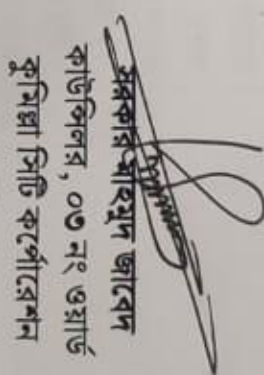 সরকার মাহমুদ জাবেদ
কাউন্সিলর, ০৩ নং ওয়ার্ড
কুমিল্লা সিটি কর্পোরেশন